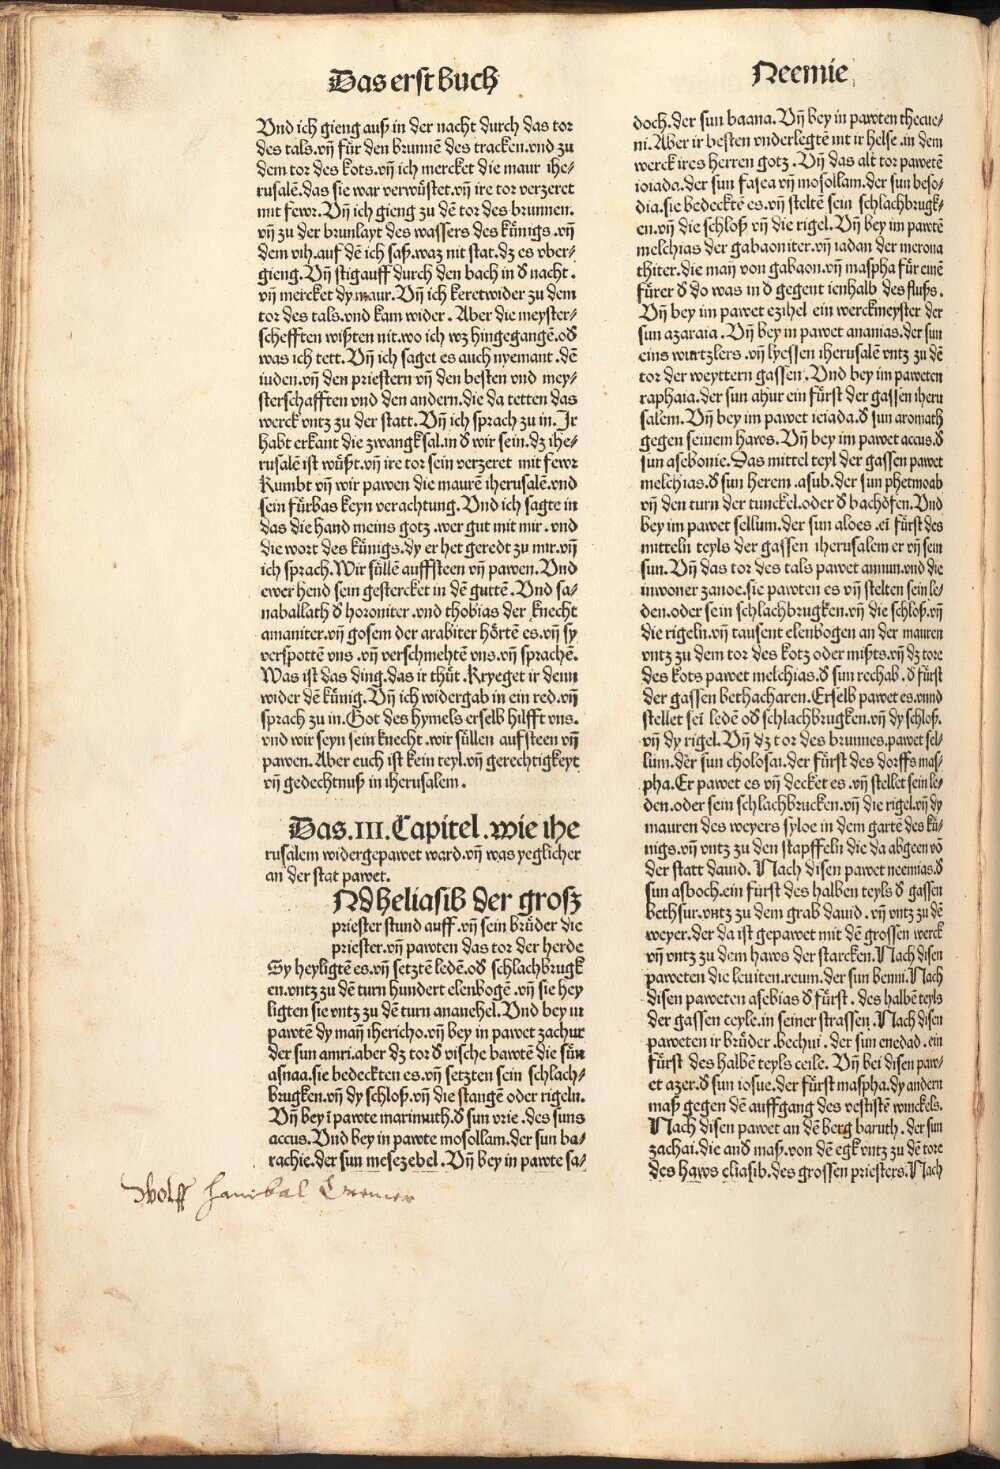 Das erst buch
Neemie
Vnd ich gieng auß in der nacht durch das tor
des tals.vn̄ für den brunnē des tracken.vnd zu
dem tor des kots.vn̄ ich mercket die maur ihe⸗
rusalē.das sie war verwüstet.vn̄ ire tor verzeret
mit fewr.Vn̄ ich gieng zu dē tor des brunnen.
vn̄ zu der brunlayt des wassers des künigs.vn̄
dem vih.auf dē ich saß.waz nit stat.dz es vber⸗
gieng.Vn̄ stig auff durch den bach in d̕ nacht.
vn̄ mercket dy maur.Vn̄ ich keret wider zu dem
tor des tals.vnd kam wider. Aber die meyster⸗
schefften wißten nit.wo ich wz hingegangē.od̕
was ich tett.Vn̄ ich saget es auch nyemant.dē
iuden.vn̄ den priestern vn̄ den besten vnd mey⸗
sterschafften vnd den andern.die da tetten das
werck vntz zu der statt.Vn̄ ich sprach zu in.Ir
habt erkant die zwangksal.in d̕ wir sein.dz ihe⸗
rusalē ist wüßt.vn̄ ire tor sein verzeret mit fewr
Kumbt vn̄ wir pawen die maurē iherusalē.vnd
sein fürbas keyn verachtung.Vnd ich sagte in
das die hand meins gotz.wer gut mit mir.vnd
die wort des künigs.dy er het geredt zu mir.vn̄
ich sprach.Wir süllē auffsteen vn̄ pawen.Vnd
ewer hend sein gestercket in dē guttē.Vnd sa⸗
naballath d̕ horoniter.vnd thobias der knecht
amaniter.vn̄ gosem der arabiter hörtē es.vn̄ sy
verspottē vns.vn̄ verschmehtē vns.vn̄ sprachē.
Was ist das ding.das ir thüt.Kryeget ir denn
wider dē künig.Vn̄ ich widergab in ein red.vn̄
sprach zu in.Got des hymels er selb hilfft vns.
vnd wir seyn sein knecht.wir süllen aufsteen vn̄
pawen.Aber euch ist kein teyl.vn̄ gerechtigkeyt
vn̄ gedechtnuß in iherusalem.
Das.III.Capitel.wie ihe
rusalem widergepawet ward.vn̄ was yeglicher
an der stat pawet.
ND heliasib der groß
priester stund auff.vn̄ sein brüder die
priester.vn̄ pawten das tor der herde
Sy heyligtē es.vn̄ setztē ledē.od̕ schlachbrugk
en.vntz zu dē turn hundert elenbogē.vn̄ sie hey
ligten sie vntz zu dē turn ananehel.Vnd bey im
pawtē dy man̄ ihericho.vn̄ bey in pawet zachur
der sun amri.aber dz tor d̕ vische bawtē die sün
asnaa.sie bedeckten es.vn̄ setzten sein schlach⸗
brugken.vn̄ dy schloß.vn̄ die stangē oder rigeln.
Vn̄ bey ī pawte marimuth.d̕ sun vrie.des suns
accus.Vnd bey in pawte mosollam.der sun ba⸗
rachie.der sun mesezebel.Vn̄ bey in pawte sa⸗
doch.der sun baana.Vn̄ bey in pawten thecue⸗
ni.Aber ir besten vnderlegtē nit ir helse.in dem
werck ires herren gotz.Vn̄ das alt tor pawetē
ioiada.der sun fasea vn̄ mosollam.der sun beso⸗
dia.sie bedecktē es.vn̄ steltē sein schlachbrugk⸗
en.vn̄ die schloß vn̄ die rigel.Vn̄ bey im pawtē
melchias der gabaoniter.vn̄ iadan der merona
thiter.die man̄ von gabaon.vn̄ maspha für einē
fürer d̕ do was in d̕ gegent ienhalb des fluß.
Vn̄ bey im pawet ezihel ein werckmeyster der
sun azaraia.Vn̄ bey in pawet ananias.der sun
eins wurtzlers.vn̄ lyessen iherusalē vntz zu dē
tor der weyttern gassen.Vnd bey im paweten
raphaia.der sun ahur ein fürst der gassen iheru
salem.Vn̄ bey im pawet ieiada.d̕ sun aromath
gegen seinem haws.Vn̄ bey im pawet accus.d̕
sun asebonie.Das mittel teyl der gassen pawet
melchias.d̕ sun herem.asub.der sun phetmoab
vn̄ den turn der tunckel.oder d̕ bachöfen.Vnd
bey im pawet sellum.der sun aloes.ei fürst des
mitteln teyls der gassen iherusalem er vn̄ sein
sun.Vn̄ das tor des tals pawet annun.vnd die
inwoner zanoe.sie pawten es vn̄ stelten sein le⸗
den.oder sein schlachbrugken.vn̄ die schloß.vn̄
die rigeln.vn̄ tausent elenbogen an der mauren
vntz zu dem tor des kotz oder mißts.vn̄ dz tore
des kots pawet melchias.d̕ sun rechab.d̕ fürst
der gassen bethacharen.Er selb pawet es.vnnd
stellet sei ledē od̕ schlachbrugken.vn̄ dy schloß.
vn̄ dy rigel.Vn̄ dz tor des brunnes.pawet sel⸗
lum.der sun cholosai.der fürst des dorffs mas⸗
pha.Er pawet es vn̄ decket es.vn̄ stellet sein le⸗
den.oder sein schlachbrucken.vn̄ die rigel.vn̄ dy
mauren des weyers syloe in dem gartē des kü⸗
nigs.vn̄ vntz zu den stapffeln die da abgeen vō
der statt dauid. Nach disen pawet neemias.d̕
sun asboch.ein fürst des halben teyls d̕ gassen
bethsur.vntz zu dem grab dauid.vn̄ vntz zu dē
weyer.der da ist gepawet mit dē grossen werck
vn̄ vntz zu dem haws der starcken.Nach disen
paweten die leuiten.reum.der sun benni.Nach
disen paweten asebias d̕ fürst.des halbē teyls
der gassen ceyle.in seiner strassen.Nach disen
paweten ir brüder.bechui.der sun enedad.ein
fürst des halbē teyls ceile. Vn̄ bei disen paw⸗
et azer.d̕ sun iosue.der fürst maspha.dy andern
maß gegen dē auffgang des vestistē winckels.
Nach disen pawet an dē berg baruth.der sun
zachai.die and maß.von dē egk vntz zu dē tore
des haws eliasib.des grossen priesters.Nach
Wolff Hanibal